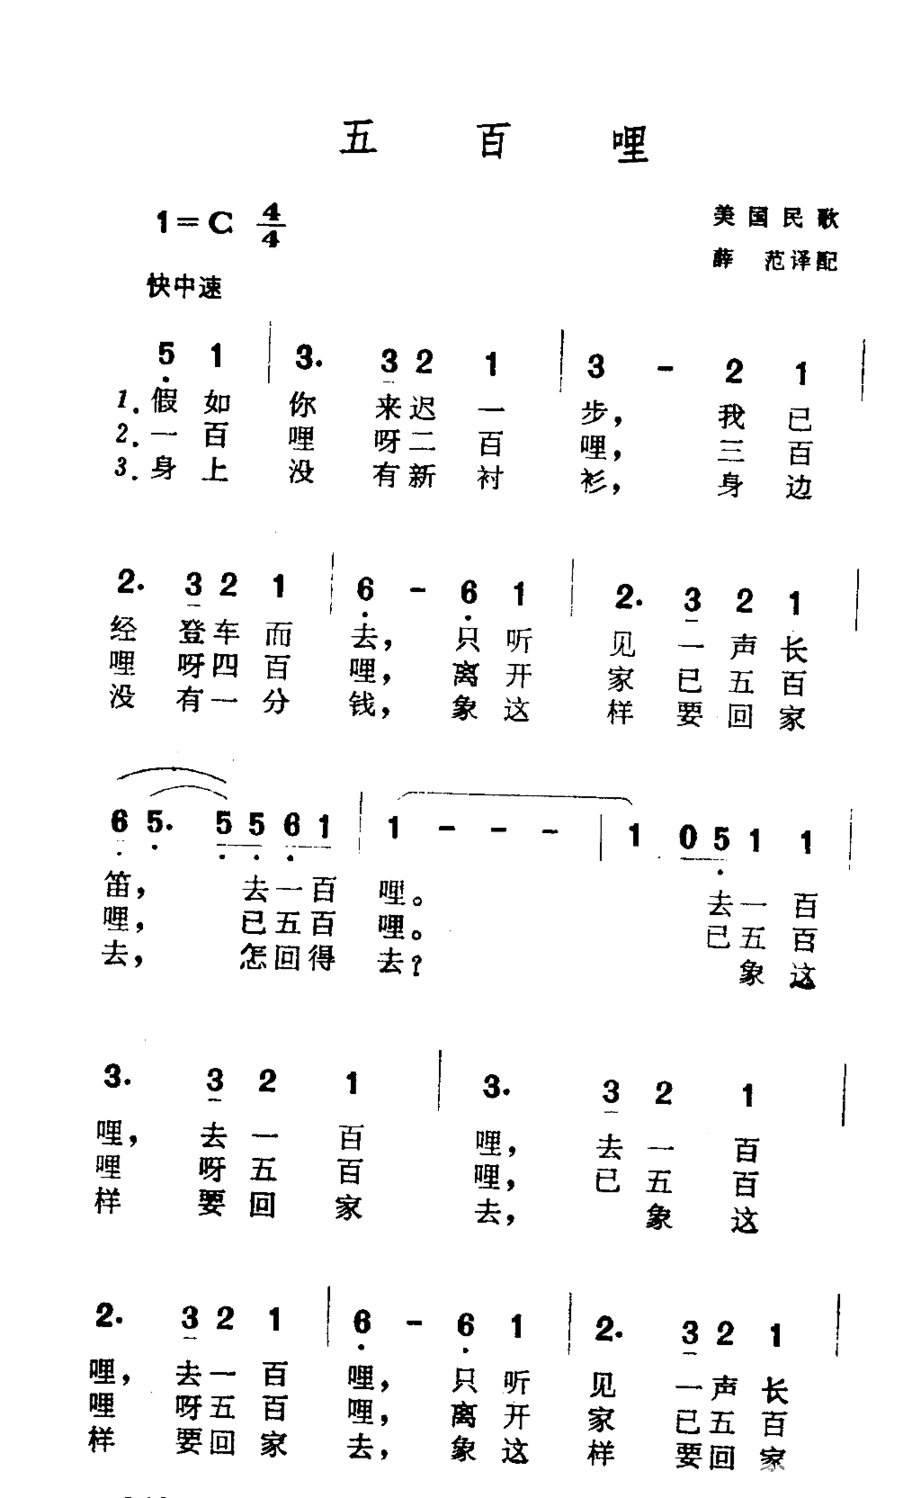 五 百 哩
1=C 4/4
美国民歌
薛 范译配
快中速
5 1 | 3. 3 2 1 | 3 - 2 1 |
1.假如你来迟一步，我已
2.一百哩呀二百哩，三百
3.身上没有新衬衫，身边
2. 3 2 1 | 6 - 6 1 | 2. 3 2 1 |
经登车而去，只听见一声长
哩呀四百哩，离开家已五百
没有一分钱，象这样要回家
6 5. 5 5 6 1 | 1 - - - | 1 0 5 1 1 |
笛，去一百哩。去一百
哩，已五百哩。已五百
去，怎回得去？象这
3. 3 2 1 | 3. 3 2 1 |
哩，去一百哩，去一百
哩呀五百哩，已五百
样要回家去，象这
2. 3 2 1 | 6 - 6 1 | 2. 3 2 1 |
哩，去一百哩，只听见一声长
哩呀五百哩，离开家已五百
样要回家去，象这样要回家